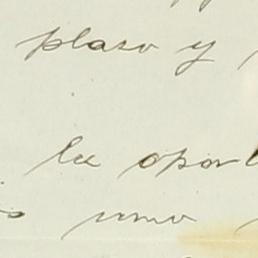 plaso y
la opor
uno